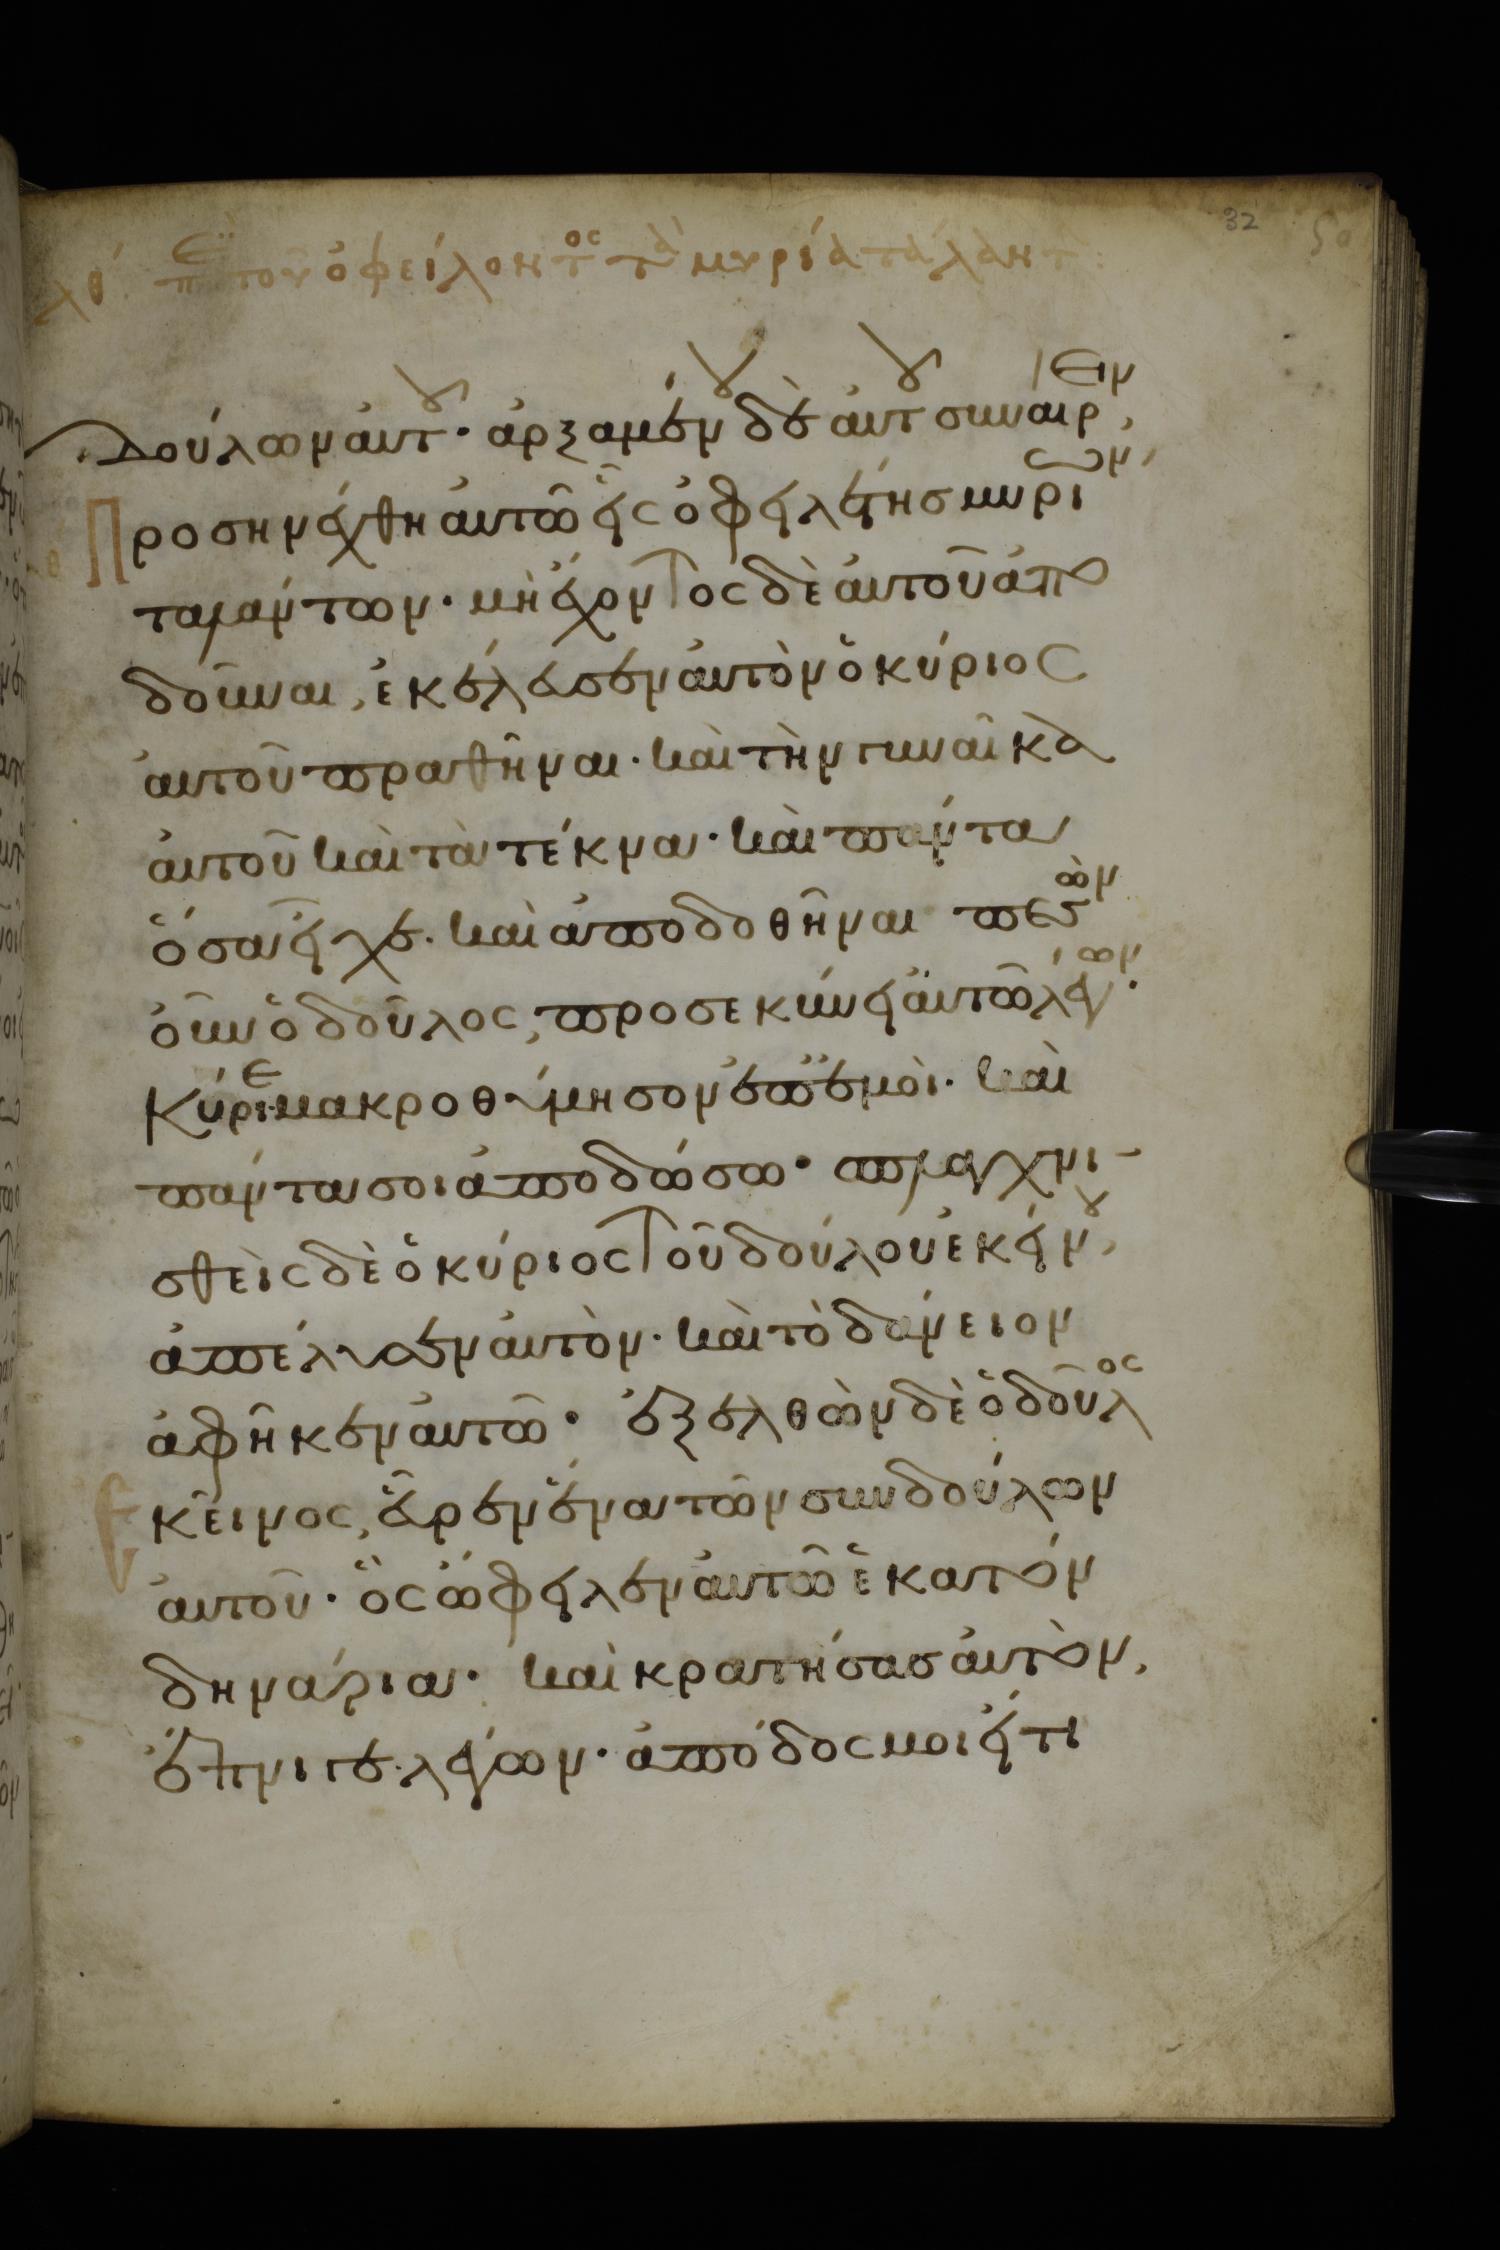 32 50
λθ περὶ τοῦ ὀφείλοντος τὰ μυρία τάλαντ
δούλων αὐτοῦ· ἀρξαμένου δὲ αὐτοῦ συναίρειν,
Προσηνέχθη αὐτῶ εἷς ὀφειλέτης μυρίων
ταλάντων· μὴ ἔχοντος δὲ αὐτοῦ ἀπο
δοῦναι, ἐκέλευσεν αὐτὸν ὁ κύριος
αὐτοῦ πραθῆναι· καὶ τὴν γυναῖκα
αὐτοῦ καὶ τὰ τέκνα· καὶ πάντα
ὅσα εἶχε· καὶ ἀποδοθῆναι πεσὼν
οὖν ὁ δοῦλος, προσεκύνει αὐτῶ λέγων·
Κύριε μακροθύμησον ἐπ' ἐμοὶ· καὶ
πάντα σοι ἀποδώσω· σπλαγχνι
σθεὶς δὲ ὁ κύριος τοῦ δούλου ἐκείνου,
ἀπέλυσεν αὐτὸν· καὶ τὸ δάνειον
ἀφῆκεν αὐτῶ· ἐξελθὼν δὲ ὁ δοῦλος
Εκεῖνος, εὗρεν ἕνα τῶν συνδούλων
αὐτοῦ· ὃς ὤφειλεν αὐτῶ ἑκατὸν
δηνάρια· καὶ κρατήσας αὐτὸν,
ἔπνιγε λέγων· ἀπόδος μοι εἴ τι